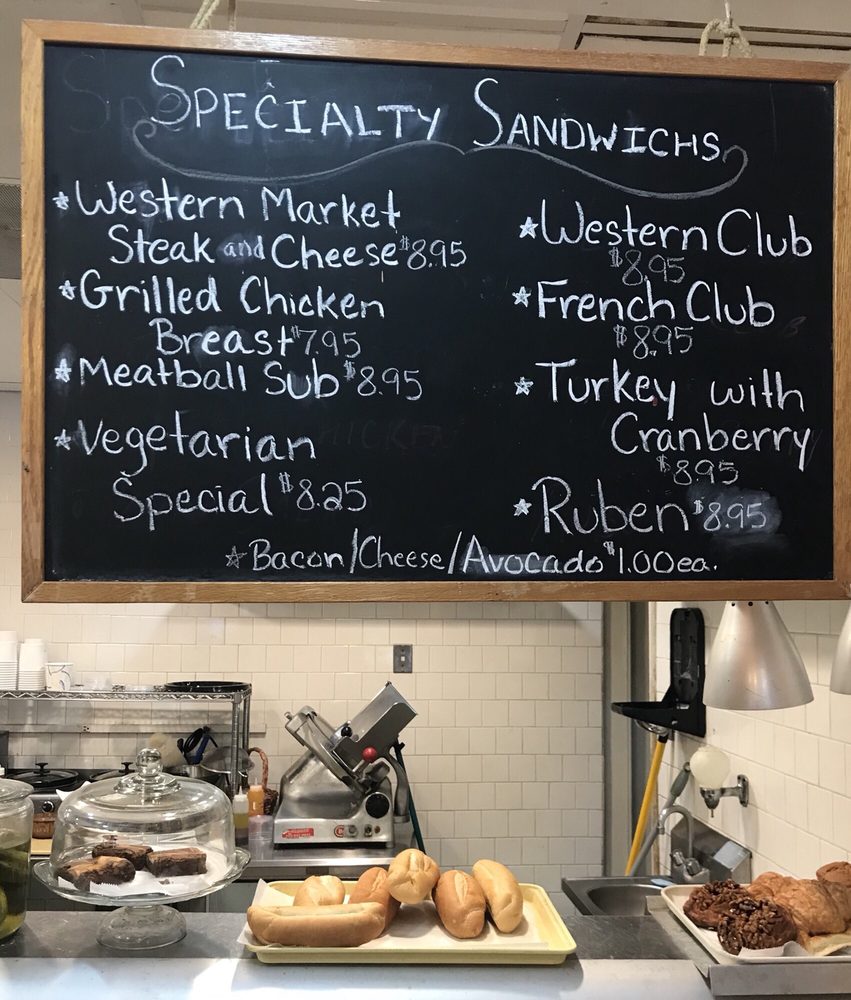 Specialty Sandwichs
*Western Market
Steak and Cheese $8.95
*Grilled Chicken
Breast $7.95
*Meatball Sub $8.95
*Vegetarian
Special $8.25
*Western Club
$8.95
*French Club
$8.95
*Turkey with
Cranberry
$8.95
*Ruben $8.95
*Bacon/Cheese/Avocado $1.00 ea.